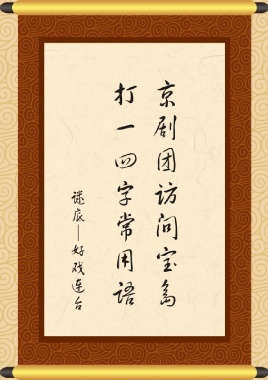 京剧团访问宝岛
打一四字常用语
谜底—好戏连台